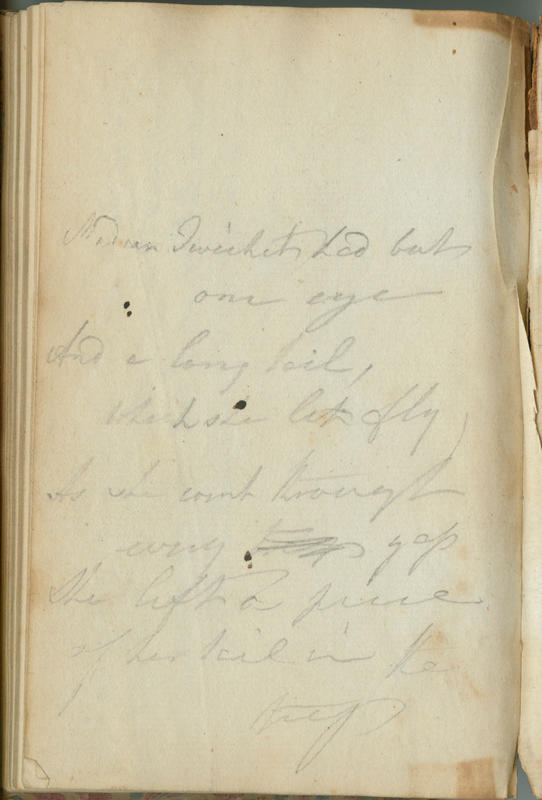 Madam Twichet had but
one eye
And a long tail,
Which she let fly,
As she went through
every gap
She left a piece
of her tail in the
trap